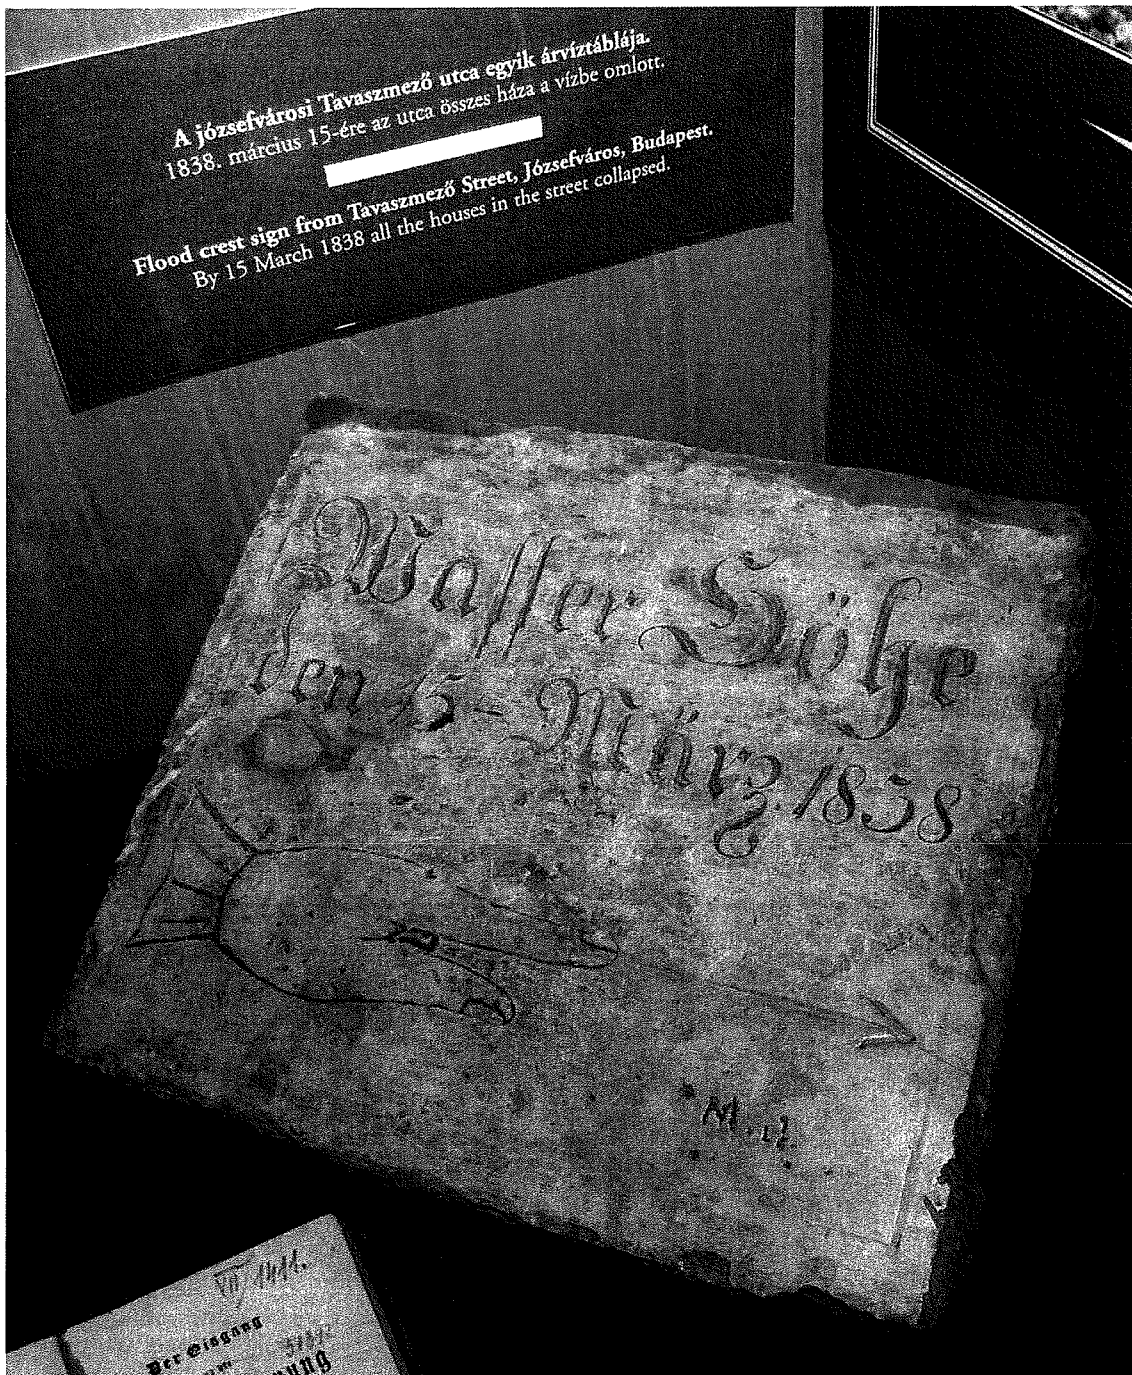 A józsefvárosi Tavaszmező utca egyik árvíztáblája.
1838. március 15-ére az utca összes háza a vízbe omlott.
Flood crest sign from Tavaszmező Street, Józsefváros, Budapest.
By 15 March 1838 all the houses in the street collapsed.
Wasser Höhe
den 15- März 1838
Der Eingang